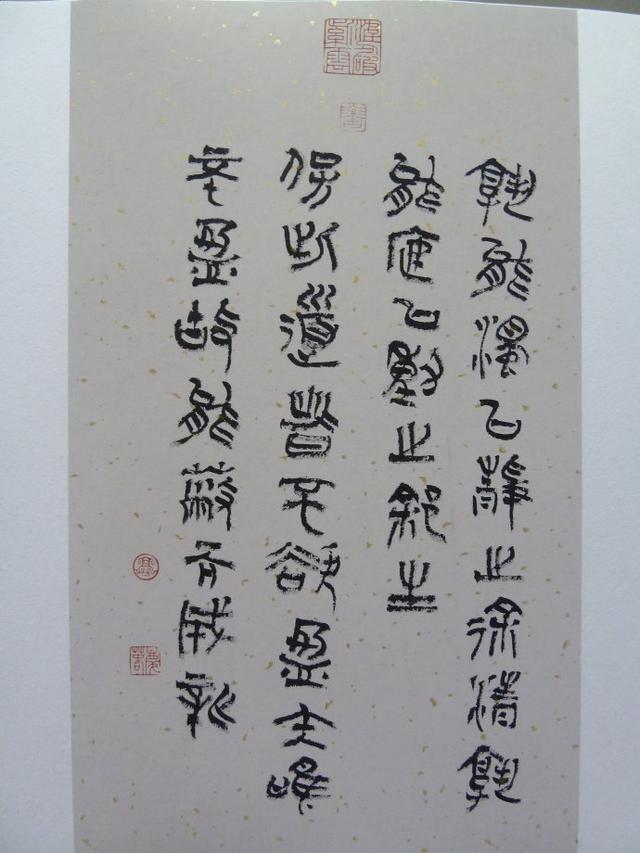 孰能濁以靜之徐清孰
能安以動之徐生
保此道者不欲盈夫唯
不盈故能蔽而成新